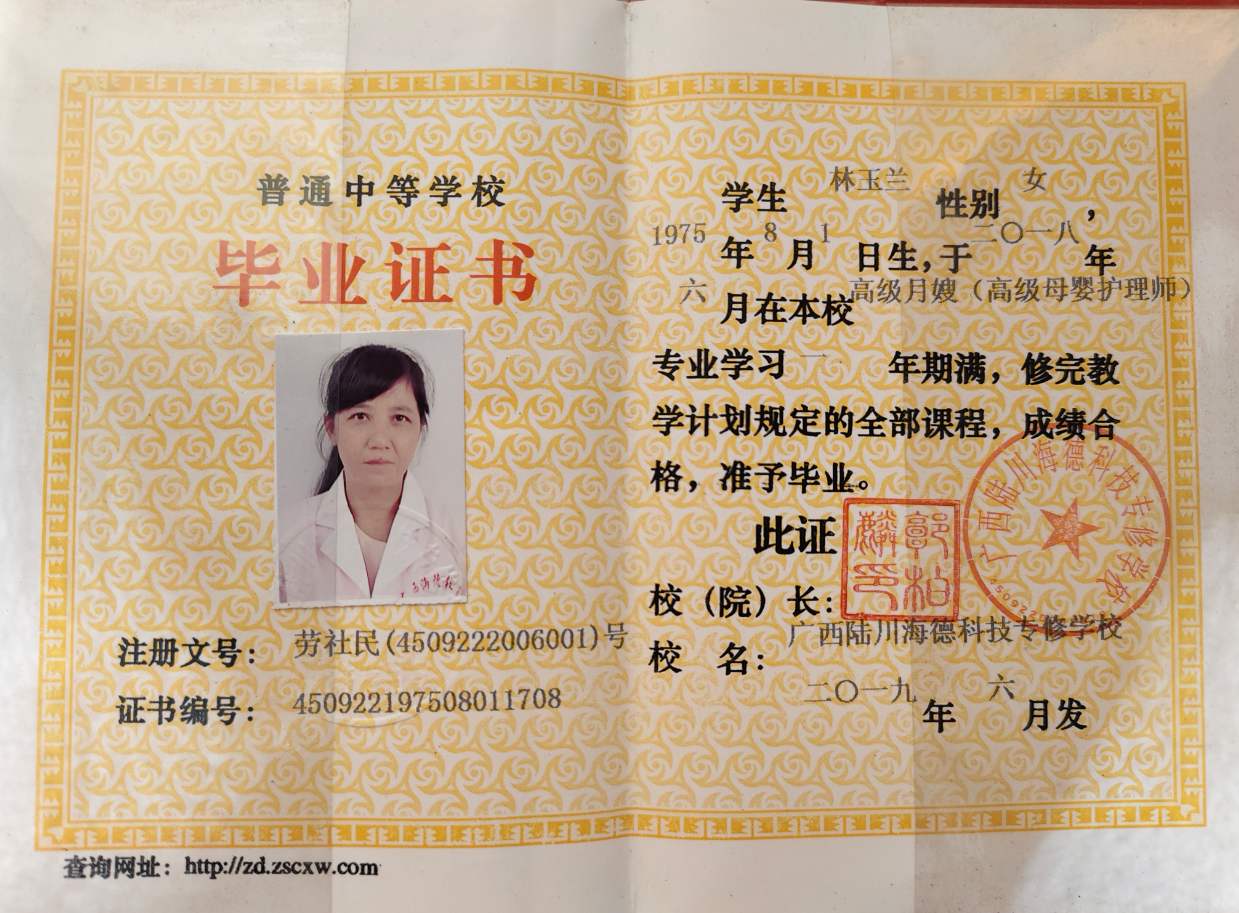 普通中等学校
毕业证书
注册文号：劳社民(4509222006001)号
证书编号：450922197508011708
查询网址：http://zd.zscxw.com
学生 林玉兰 性别 女，
1975年8月1日生，于二〇一八年
六月在本校高级月嫂（高级母婴护理师）
专业学习一年期满，修完教
学计划规定的全部课程，成绩合
格，准予毕业。
此证
校（院）长：
郭松麟印
校 名：广西陆川海德科技专修学校
广西陆川海德科技专修学校
二〇一九年六月发